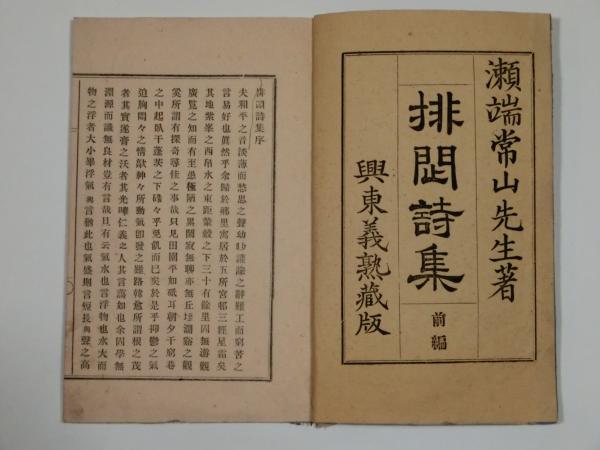 瀬端常山先生著
排悶詩集
前編
興東義熟藏版
排悶詩集序
夫和平之音淡薄而愁思之聲幼之辭難工而窮苦之
言易好也眞然乎余歸於鄉里寓居於五所宮邨三經星霜矣
其地紫峯之西帛水之東距轂之下三十有餘里固無游觀
廣覧之知而有至愚極陋之累闃寂無聊亦無丘澗谿之觀
奚所謂有探奇尋佳之事哉只見田園平如砥耳朝夕于窮巷
之中起臥于蓬茨之下碌々乎免飢而已矣於是乎抑鬱之氣
迫胸悶々之情神々所動氣卽發之雖韓愈所謂根之茂
者其實遂膏之沃者其光曄仁義之人其言藹如也余固學無
淵源而識無良材豈有言哉且有云氣水也言浮物也水大而
物之浮者大小畢浮氣與言猶此也氣盛則言短長與聲之高